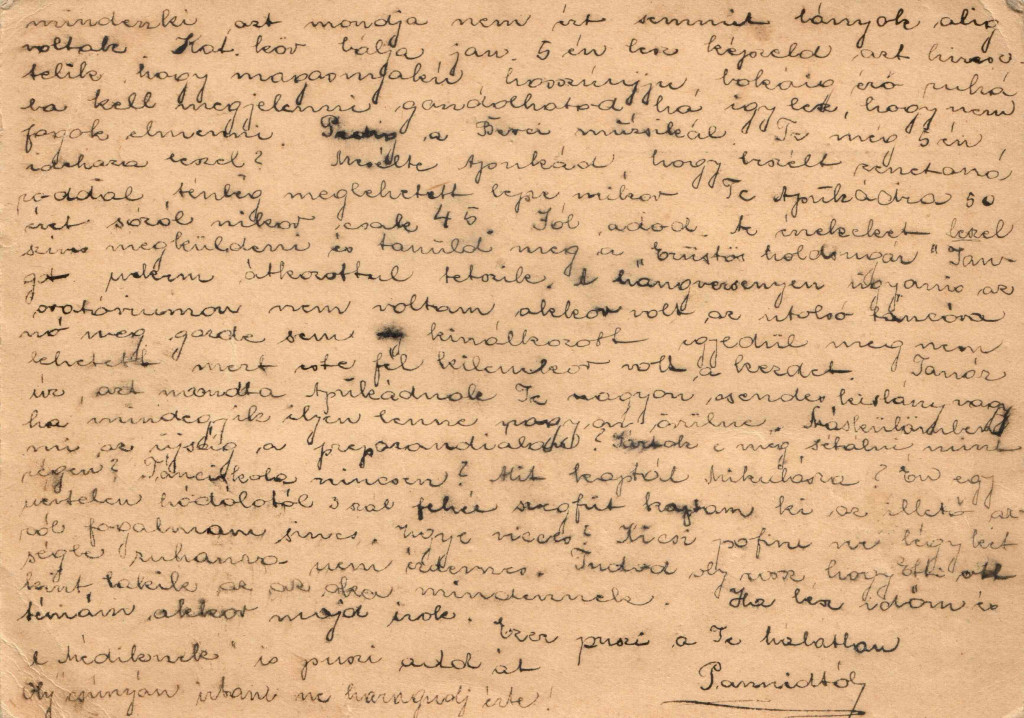 mindenki azt mondja nem ért semmit lányok alig
voltak. Kat. köv bálja jan. 5 én lesz képzeld azt híresz-
telik hogy magasnyakú hosszúujju bokáig érő ruhá
ba kell megjelenni gondolhatod ha így lesz, hogy nem
fogok elmenni. Pedig a Berci muzsikál. Te még 5 én
leszel? Mesélte Apukád hogy beszélt zenetaná
roddal tényleg meglehetett lepve mikor Te Apukádra 50
évet sózol mikor csak 45. Jól adod. Az énekeket leszel
szíves megküldeni és tanuld meg a "Ezüstös holdsugár" Tan-
gót nekem átkozottul tetszik. A hangversenyen ugyanis az
oratóriumon nem voltam akkor volt az utolsó táncóra
nő meg garde sem kínálkozott egyedül meg nem
lehetett mert este fél kilenckor volt a kezdet. Tanár
úr, azt mondta Apukádnak Te nagyon csendes kislány vagy
ha mindegyik ilyen lenne nagyon örülne. Máskülömben
mi az újság a preparandiában? Jártok e még sétálni mint
régen? Tánciskola nincsen? Mit kaptál Mikulásra? Én egy
ismeretlen hódolótól 3 szál fehér szegfűt kaptam ki az illető az-
ról fogalmam sincs. Ugye vicces? Kicsi pofim ne légy két
ségbe ruhámra nem érdemes. Tudod oly rossz, hogy Etti ott
kint lakik az az oka mindennek. Ha lesz időm és
témám akkor majd írok.
Ezer puszi a Te hálátlan
A Médiknek is puszi add át
Pannidtól
Oly csúnyán írtam ne haragudj érte!